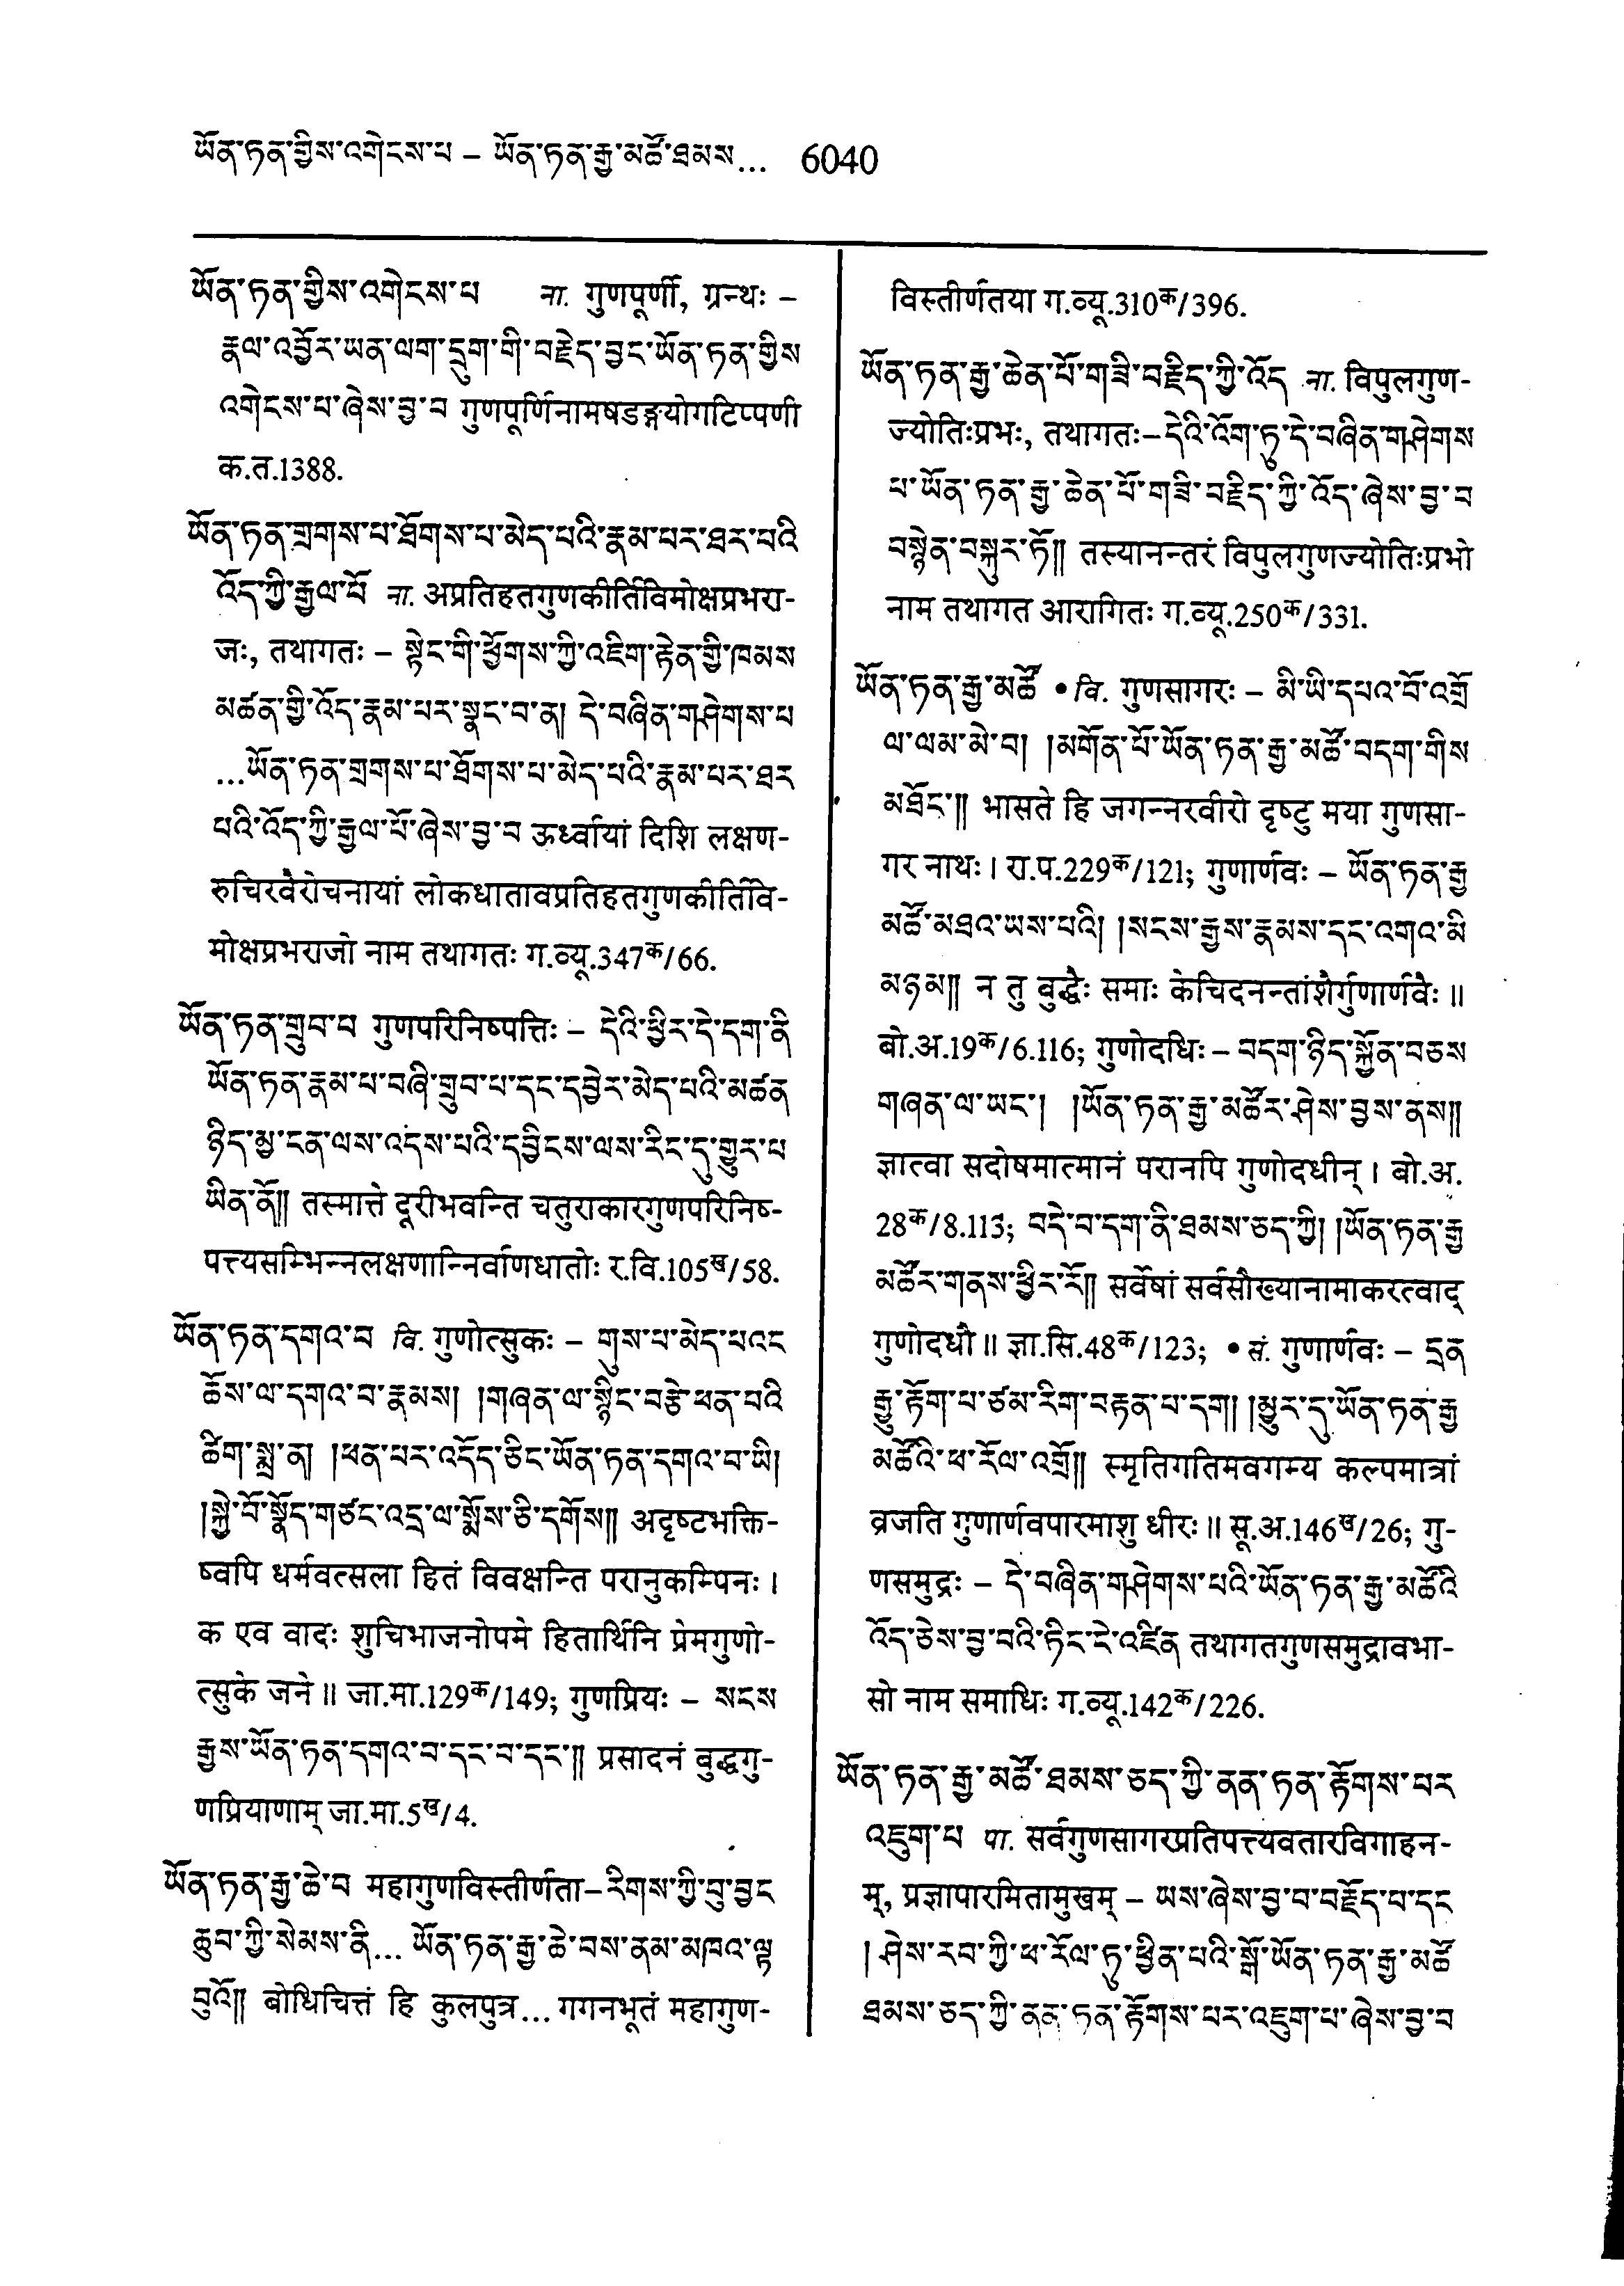 ཡོན་ཏན་གྱིས་འགེངས་པ – ཡོན་ཏན་རྒྱ་མཚོ་ཐམས... 6040
ཡོན་ཏན་གྱིས་འགེངས་པ ना. गुणपूर्णी, ग्रन्थः –
རྣལ་འབྱོར་ཡན་ལག་དྲུག་གི་བརྗེད་བྱང་ཡོན་ཏན་གྱིས
འགེངས་པ་ཞེས་བྱ་བ गुणपूर्णिनामषडङ्गयोगटिप्पणी
क.त.1388.
ཡོན་ཏན་གྲགས་པ་ཐོགས་པ་མེད་པའི་རྣམ་པར་ཐར་པའི
འོད་ཀྱི་རྒྱལ་པོ ना. अप्रतिहतगुणकीर्तिविमोक्षप्रभरा-
जः, तथागतः – སྟེང་གི་ཕྱོགས་ཀྱི་འཇིག་རྟེན་གྱི་ཁམས
མཚན་གྱི་འོད་རྣམ་པར་སྣང་བ་ན། དེ་བཞིན་གཤེགས་པ
...ཡོན་ཏན་གྲགས་པ་ཐོགས་པ་མེད་པའི་རྣམ་པར་ཐར
པའི་འོད་ཀྱི་རྒྱལ་པོ་ཞེས་བྱ་བ ऊर्ध्वायां दिशि लक्षण-
रुचिरवैरोचनायां लोकधातावप्रतिहतगुणकीर्तिवि-
मोक्षप्रभराजो नाम तथागतः ग.व्यू.347क/66.
ཡོན་ཏན་གྲུབ་པ गुणपरिनिष्पत्तिः – དེའི་ཕྱིར་དེ་དག་ནི
ཡོན་ཏན་རྣམ་པ་བཞི་གྲུབ་པ་དང་དབྱེར་མེད་པའི་མཚན
ཉིད་མྱ་ངན་ལས་འདས་པའི་དབྱིངས་ལས་རིང་དུ་གྱུར་པ
ཡིན་ནོ།། तस्मात्ते दूरीभवन्ति चतुराकारगुणपरिनिष-
पत्त्यसम्भिन्नलक्षणान्निर्वाणधातोः र.वि.105ख/58.
ཡོན་ཏན་དགའ་བ वि. गुणोत्सुकः – གུས་པ་མེད་པའང
ཆོས་ལ་དགའ་བ་རྣམས། །གཞན་ལ་སྙིང་བརྩེ་ཕན་པའི
ཚིག་སྨྲ་ན། །ཕན་པར་འདོད་ཅིང་ཡོན་ཏན་དགའ་བ་ཡི།
།སྐྱེ་བོ་སྣོད་གཙང་འདྲ་ལ་སྨོས་ཅི་དགོས།། अदृष्टभक्ति-
ष्वपि धर्मवत्सला हितं विवक्षन्ति परानुकम्पिनः ।
क एव वादः शुचिभाजनोपमे हितार्थिनि प्रेमगुणो-
त्सुके जने ॥ जा.मा.129क/149; गुणप्रियः – སངས
རྒྱས་ཡོན་ཏན་དགའ་བ་དང་བ་དང་།། प्रसादनं बुद्धगु-
णप्रियाणाम् जा.मा.5ख/4.
ཡོན་ཏན་རྒྱ་ཆེ་བ महागुणविस्तीर्णता – རིགས་ཀྱི་བུ་བྱང
ཆུབ་ཀྱི་སེམས་ནི... ཡོན་ཏན་རྒྱ་ཆེ་བས་ནམ་མཁའ་ལྟ
བུའོ།། बोधिचित्तं हि कुलपुत्र... गगनभूतं महागुण-
विस्तीर्णतया ग.व्यू.310क/396.
ཡོན་ཏན་རྒྱ་ཆེན་པོ་གཟི་བརྗིད་ཀྱི་འོད ना. विपुलगुण-
ज्योतिःप्रभः, तथागतः – དེའི་འོག་ཏུ་དེ་བཞིན་གཤེགས
པ་ཡོན་ཏན་རྒྱ་ཆེན་པོ་གཟི་བརྗིད་ཀྱི་འོད་ཞེས་བྱ་བ
བསྙེན་བསྐུར་ཏོ།། तस्यानन्तरं विपुलगुणज्योतिःप्रभो
नाम तथागत आरागितः ग.व्यू.250क/331.
ཡོན་ཏན་རྒྱ་མཚོ • वि. गुणसागरः – མི་ཡི་དཔའ་བོ་འགྲོ
ལ་ལམ་མེ་བ། །མགོན་པོ་ཡོན་ཏན་རྒྱ་མཚོ་བདག་གིས
མཐོང་།། भासते हि जगन्नरवीरो दृष्टु मया गुणसा-
गर नाथः । रा.प.229क/121; गुणार्णवः – ཡོན་ཏན་རྒྱ
མཚོ་མཐའ་ཡས་པའི། །སངས་རྒྱས་རྣམས་དང་འགའ་མི
མཉམ།། न तु बुद्धैः समाः केचिदनन्तांशैर्गुणार्णवैः ॥
बो.अ.19क/6.116; गुणोदधिः – བདག་ཉིད་སྐྱོན་བཅས
གཞན་ལ་ཡང་། །ཡོན་ཏན་རྒྱ་མཚོར་ཤེས་བྱས་ནས།།
ज्ञात्वा सदोषमात्मानं परानपि गुणोदधीन् । बो.अ.
28क/8.113; བདེ་བ་དག་ནི་ཐམས་ཅད་ཀྱི། །ཡོན་ཏན་རྒྱ
མཚོར་གནས་ཕྱིར་རོ།། सर्वेषां सर्वसौख्यानामाकरत्वाद्
गुणोदधी ॥ ज्ञा.सि.48क/123; • सं. गुणार्णवः – དྲན
རྒྱུ་རྟོག་པ་ཙམ་རིག་བརྟན་པ་དག། །མྱུར་དུ་ཡོན་ཏན་རྒྱ
མཚོའི་ཕ་རོལ་འགྲོ།། स्मृतिगतिमवगम्य कल्पमात्रां
व्रजति गुणार्णवपारमाशु धीरः ॥ सू.अ.146ख/26; गु-
णसमुद्रः – དེ་བཞིན་གཤེགས་པའི་ཡོན་ཏན་རྒྱ་མཚོའི
འོད་ཅེས་བྱ་བའི་ཏིང་ངེ་འཛིན तथागतगुणसमुद्रावभा-
सो नाम समाधिः ग.व्यू.142क/226.
ཡོན་ཏན་རྒྱ་མཚོ་ཐམས་ཅད་ཀྱི་ནན་ཏན་རྟོགས་པར
འཇུག་པ पा. सर्वगुणसागरप्रतिपत्त्यवतारविगाहन-
म्, प्रज्ञापारमितामुखम् – ཡས་ཞེས་བྱ་བ་བརྗོད་པ་དང
། ཤེས་རབ་ཀྱི་ཕ་རོལ་ཏུ་ཕྱིན་པའི་སྒོ་ཡོན་ཏན་རྒྱ་མཚོ
ཐམས་ཅད་ཀྱི་ནན་ཏན་རྟོགས་པར་འཇུག་པ་ཞེས་བྱ་བ